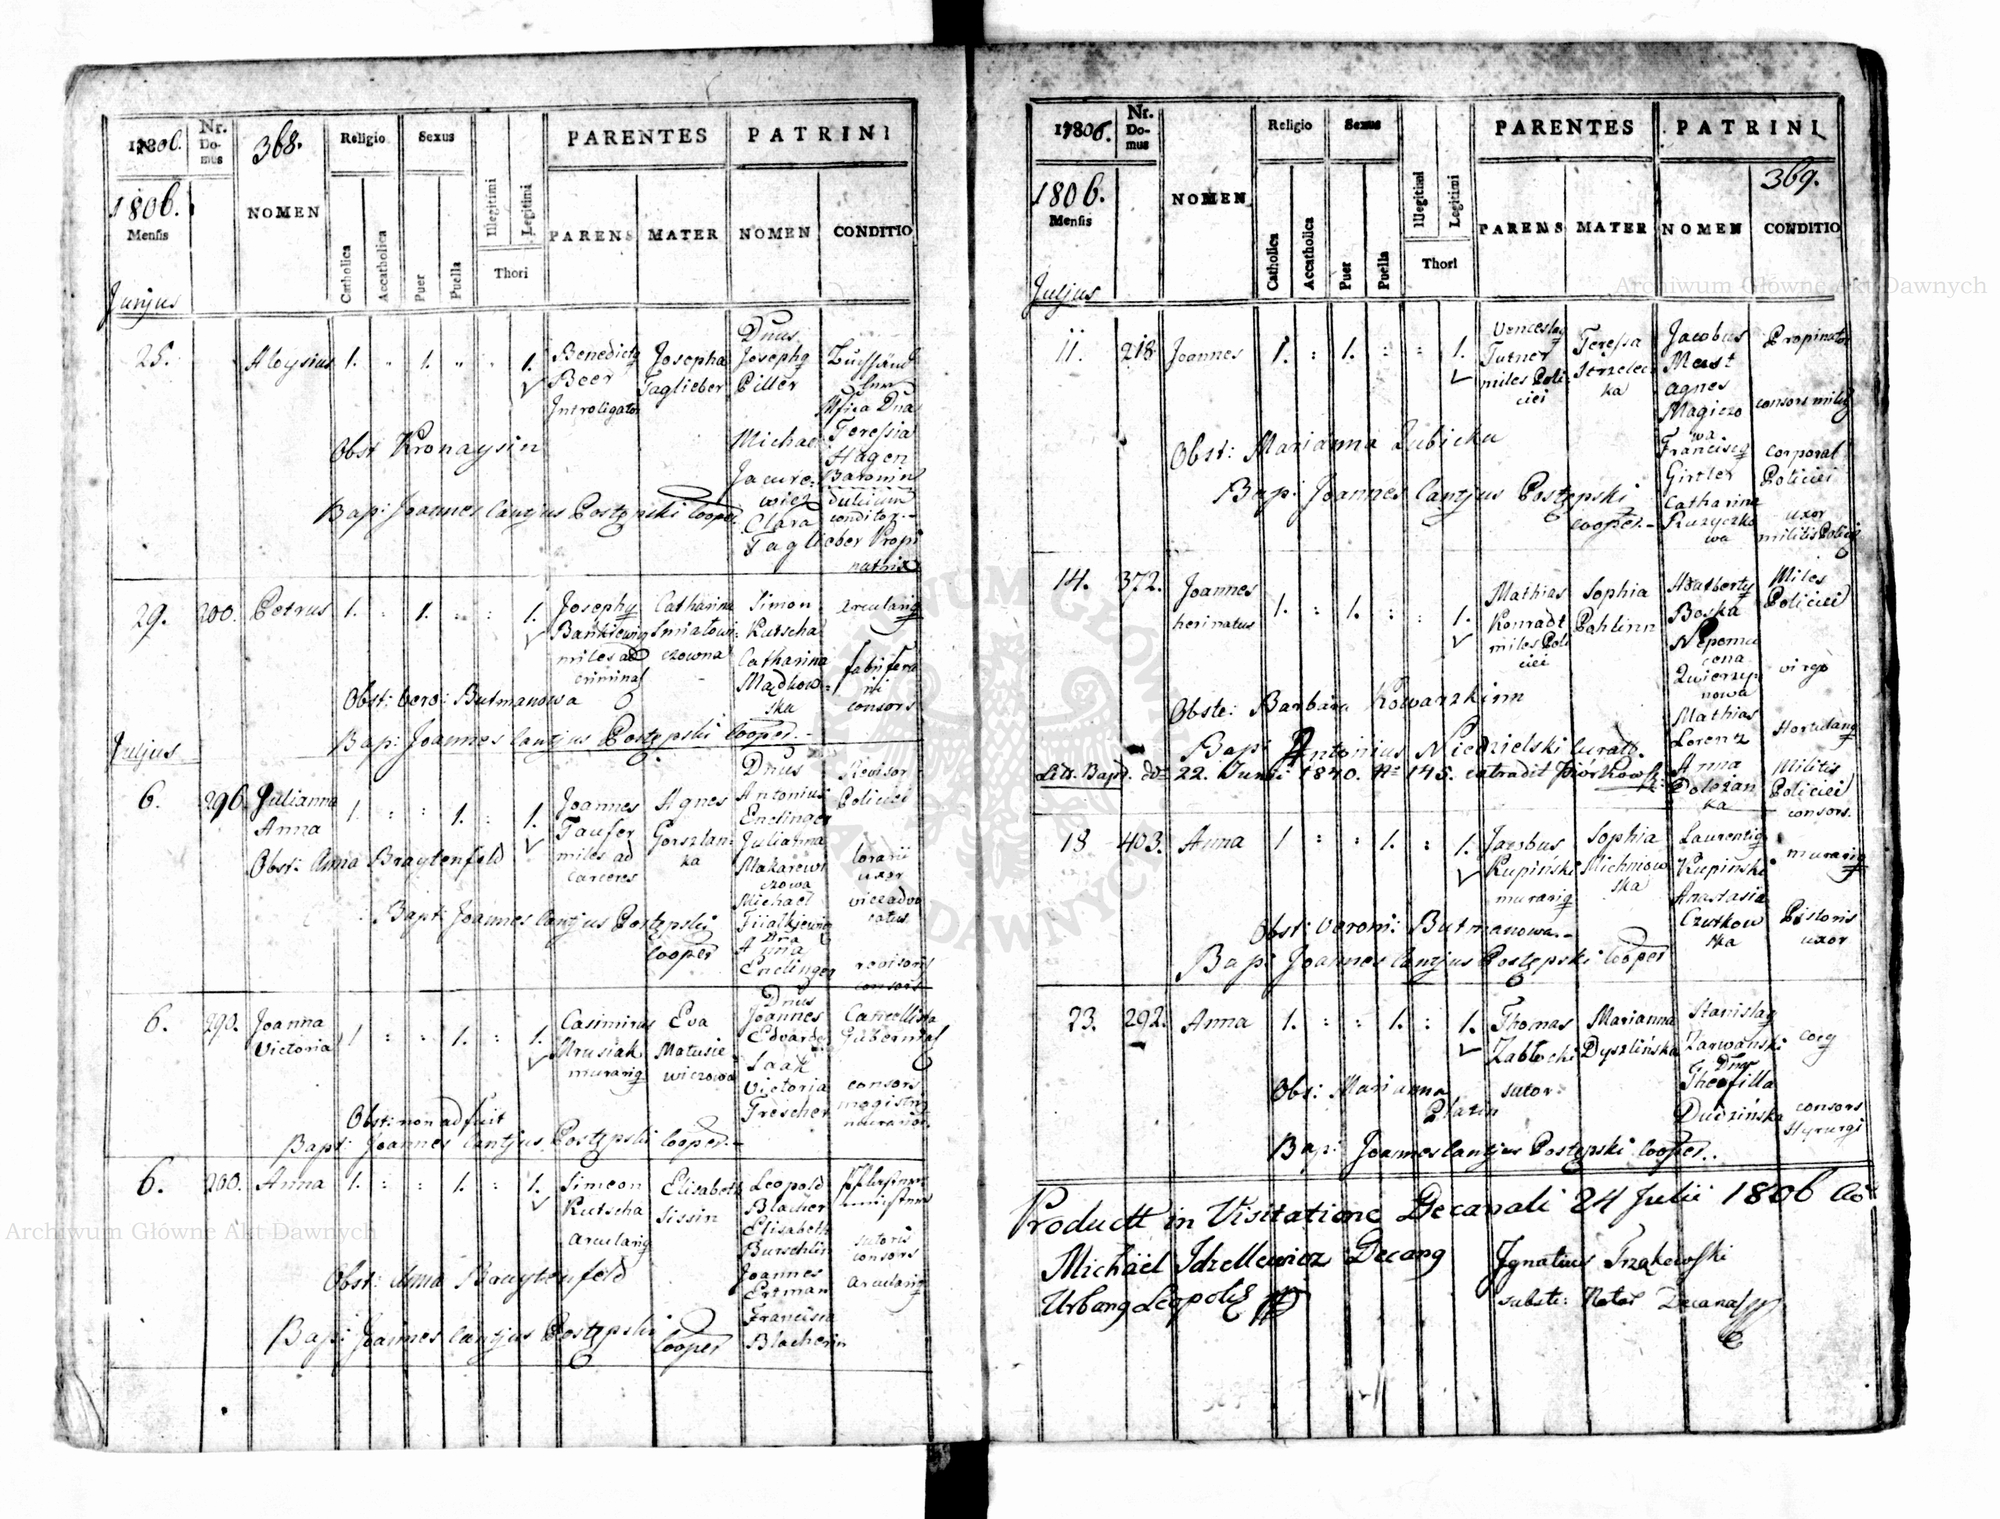 1806.
Nr. Domus
368.
Religio
Sexus
PARENTES
PATRINI
1806.
Mensis
NOMEN
Catholica
Accatholica
Puer
Puella
Illegitimi
Legitimi
Thori
PARENS
MATER
NOMEN
CONDITIO
Junjus
25.
Aloysius
1.
1.
1.
Benedictq
Beer
Introligator
Josepha
Taglieber
Dnus
Josephq
Piller
Michae
Jacuro-
wicz
Clara
Taglieber Propi
natrix
Teressia
Hagen
conditor.-
Obst Kronaysin
Bap: Joannes Cantjus Postępski Cooper.
29.
200.
Petrus
1.
1.
1.
Josephq
Bankiewiq
miles ad
criminal
Catharina
Smiatowi-
czowna
Simon
Kutscha
Catharina
Mądkow-
ska
arculariq
consors
Obst: vero: Butmanowa
Bap: Joannes Cantjus Postępski Cooper.-
Juljus
6.
296.
Julianna
Anna
1.
1.
1.
Joannes
Taufer
miles ad
carceres
Agnes
Gorszlan-
ka
Dnus
Antonius
Enclinger
Julianna
Makarewi
czowa
Michael
Fiialkiewicz
Dna
Anna
Enclinger
Revisor
Policiei
lorarii
uxor
viceadvo
catus
revisoris
consors
Obst: Anna Braytenfeld
Bapt: Joannes Cantjus Postępski
Cooper
6.
290.
Joanna
Victoria
1
1.
1.
Casimirus
Mrusiak
murariq
Eva
Matusie-
wiczowa
Dnus
Joannes
Edvardq
Saak
Victoria
Trescher
Cancellista
Gubernial
consors
magistri
murarior.
Obst: non adfuit
Bapt: Joannes Cantjus Postępski Cooper.-
6.
200.
Anna
1.
1.
1.
Simeon
Kutscha
arculariq
Elisabeth
Sissin
Leopold
Blacher
Elisabeth
Burschlin
Joannes
Ertman
Francisca
Blacherin
sutoris
consors
arculariq
Obst: Anna Brauytenfeld
Bap: Joannes Cantjus Postępski Cooper
1806.
Nr. Domus
Religio
Sexus
PARENTES
PATRINI
369.
1806.
Mensis
NOMEN
Catholica
Accatholica
Puer
Puella
Illegitimi
Legitimi
Thori
PARENS
MATER
NOMEN
CONDITIO
Juljus
11.
218
Joannes
1.
1.
1.
Venceslaq
Tutner
miles Poli-
ciei
Teressa
Strzelec-
ka
Jacobus
Meust
Agnes
Magiero
wa
Franciscq
Girtler
Catharina
Ruzyczko
wa
Propinator
consors militq
corporal
Policiei
uxor
militis Policiei
Obst: Marianna Zubicka
Bap: Joannes Cantjus Postępski
Cooper.-
14.
372.
Joannes
heri natus
1.
1.
1.
Mathias
Konradt
miles Poli
ciei
Sophia
Pahlinn
Adalbertq
Boska
Nepomu
cena
Zwierzy
nowa
Mathias
Lorentz
Anna
Dolożan
ka
Miles
Policiei
virgo
Hortulanq
Militis
Policiei
consors.
Obste: Barbara Kowarzkinn
Bap: Antonius Niedzielski Curatq.
Litt. Bapt. do 22. Junii 1840. No 145. extradit Piórkowski
18
403.
Anna
1
1.
1.
Jacobus
Kupiński
murariq
Sophia
Michniow
ska
Laurentiq
Kupiński
Anastasia
Czutkow
ska
murariq
Pistoris
uxor
Obst: veroni: Butmanowa.-
Bap: Joannes Cantjus Postępski Cooper
23.
292.
Anna
1.
1.
1.
Thomas
Zabłocki
sutor
Marianna
Dyszlińska
Stanislaq
Zarwański
Dna
Theofilla
Dudzińska
cocq
consors
Hyrurgi
Obs: Marianna
Platzn
Bap: Joannes Cantjus Postępski Cooper.
Product in Visitatione Decanali 24 Julii 1806 Ao
Michaël Idzellewicz Decanq
Urbanq Leopolis
Ignatius Trząkowski
substi: Notar Decanal
Archiwum Główne Akt Dawnych
Archiwum Główne Akt Dawnych
ARCHIWUM GŁÓWNE AKT DAWNYCH